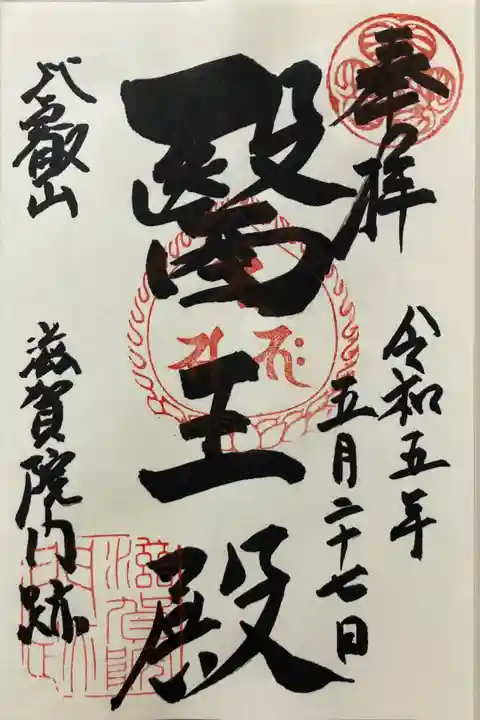 奉拝
令和五年
五月二十七日
醫王殿
比叡山
滋賀院内跡